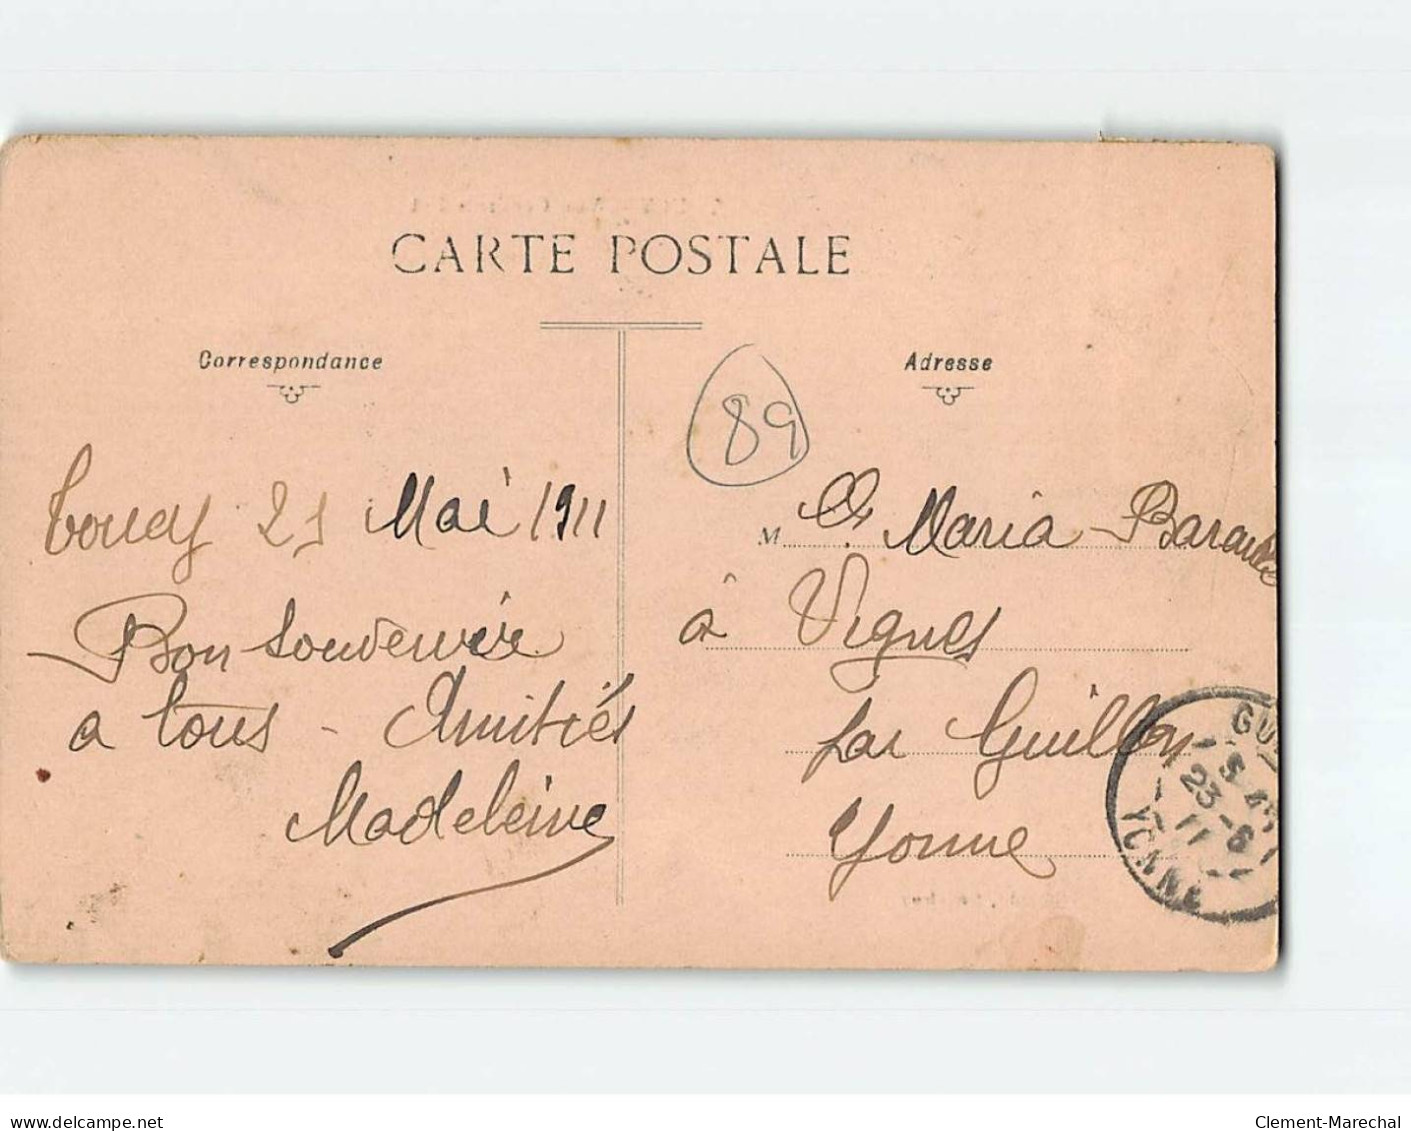 CARTE POSTALE
Correspondance
Adresse
89
Toucy 21 Mai 1911
Bon Souvenir
a tous - Amitiés
Madeleine
M
Maria
à Vignes
par Guillon
Yonne
GU
23 -5
11
YONNE
delcampe.net
Clement-Marechal